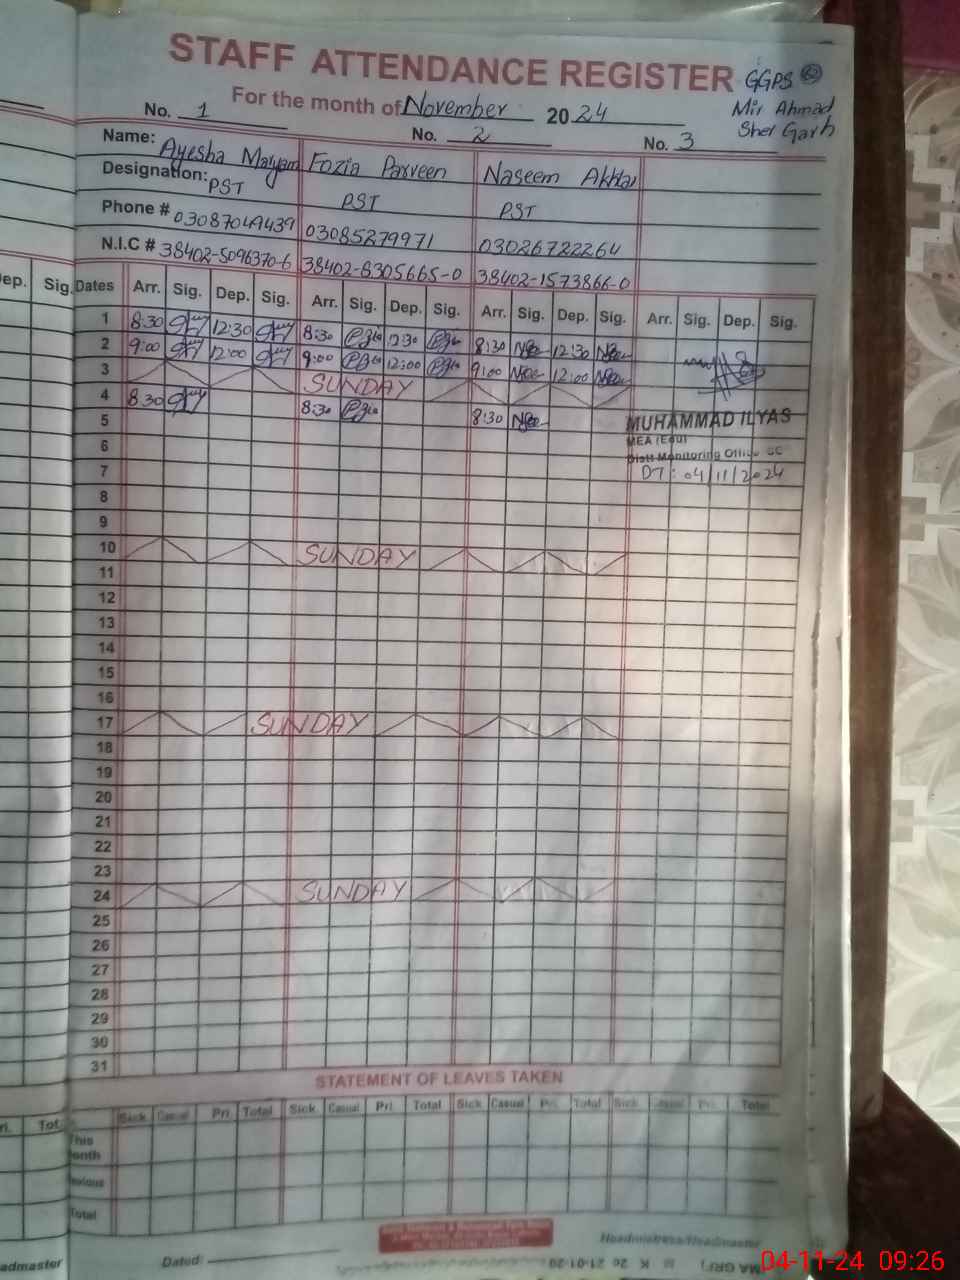 STAFF ATTENDANCE REGISTER GGPS
For the month of November 2024 Mir Ahmad
Sher Garh
No. 1 No. 2 No. 3
Name: Ayesha Maryam Fozia Parveen Naseem Akhtar
Designation: PST PST PST
Phone # 03087049439 03085279971 03026722264
N.I.C # 38402-5096370-6 38402-8305665-0 38402-1573866-0
ep. Sig. Dates Arr. Sig. Dep. Sig. Arr. Sig. Dep. Sig. Arr. Sig. Dep. Sig. Arr. Sig. Dep. Sig.
1 8:30 12:30 8:30 12:30 8:30 12:30
2 9:00 12:00 9:00 12:00 9:00 12:00
3 SUNDAY
4 8:30 8:30 8:30
MUHAMMAD ILYAS
MEA (Edu)
Distt Monitoring Office
DT: 04/11/2024
5
6
7
8
9
10 SUNDAY
11
12
13
14
15
16
17 SUNDAY
18
19
20
21
22
23
24 SUNDAY
25
26
27
28
29
30
31
STATEMENT OF LEAVES TAKEN
Sick Casual Pri. Total Sick Casual Pri. Total Sick Casual Pri. Total Sick Casual Pri. Total
This
onth
Total
eadmaster Dated: Headmistress/Headmaster
04-11-24 09:26